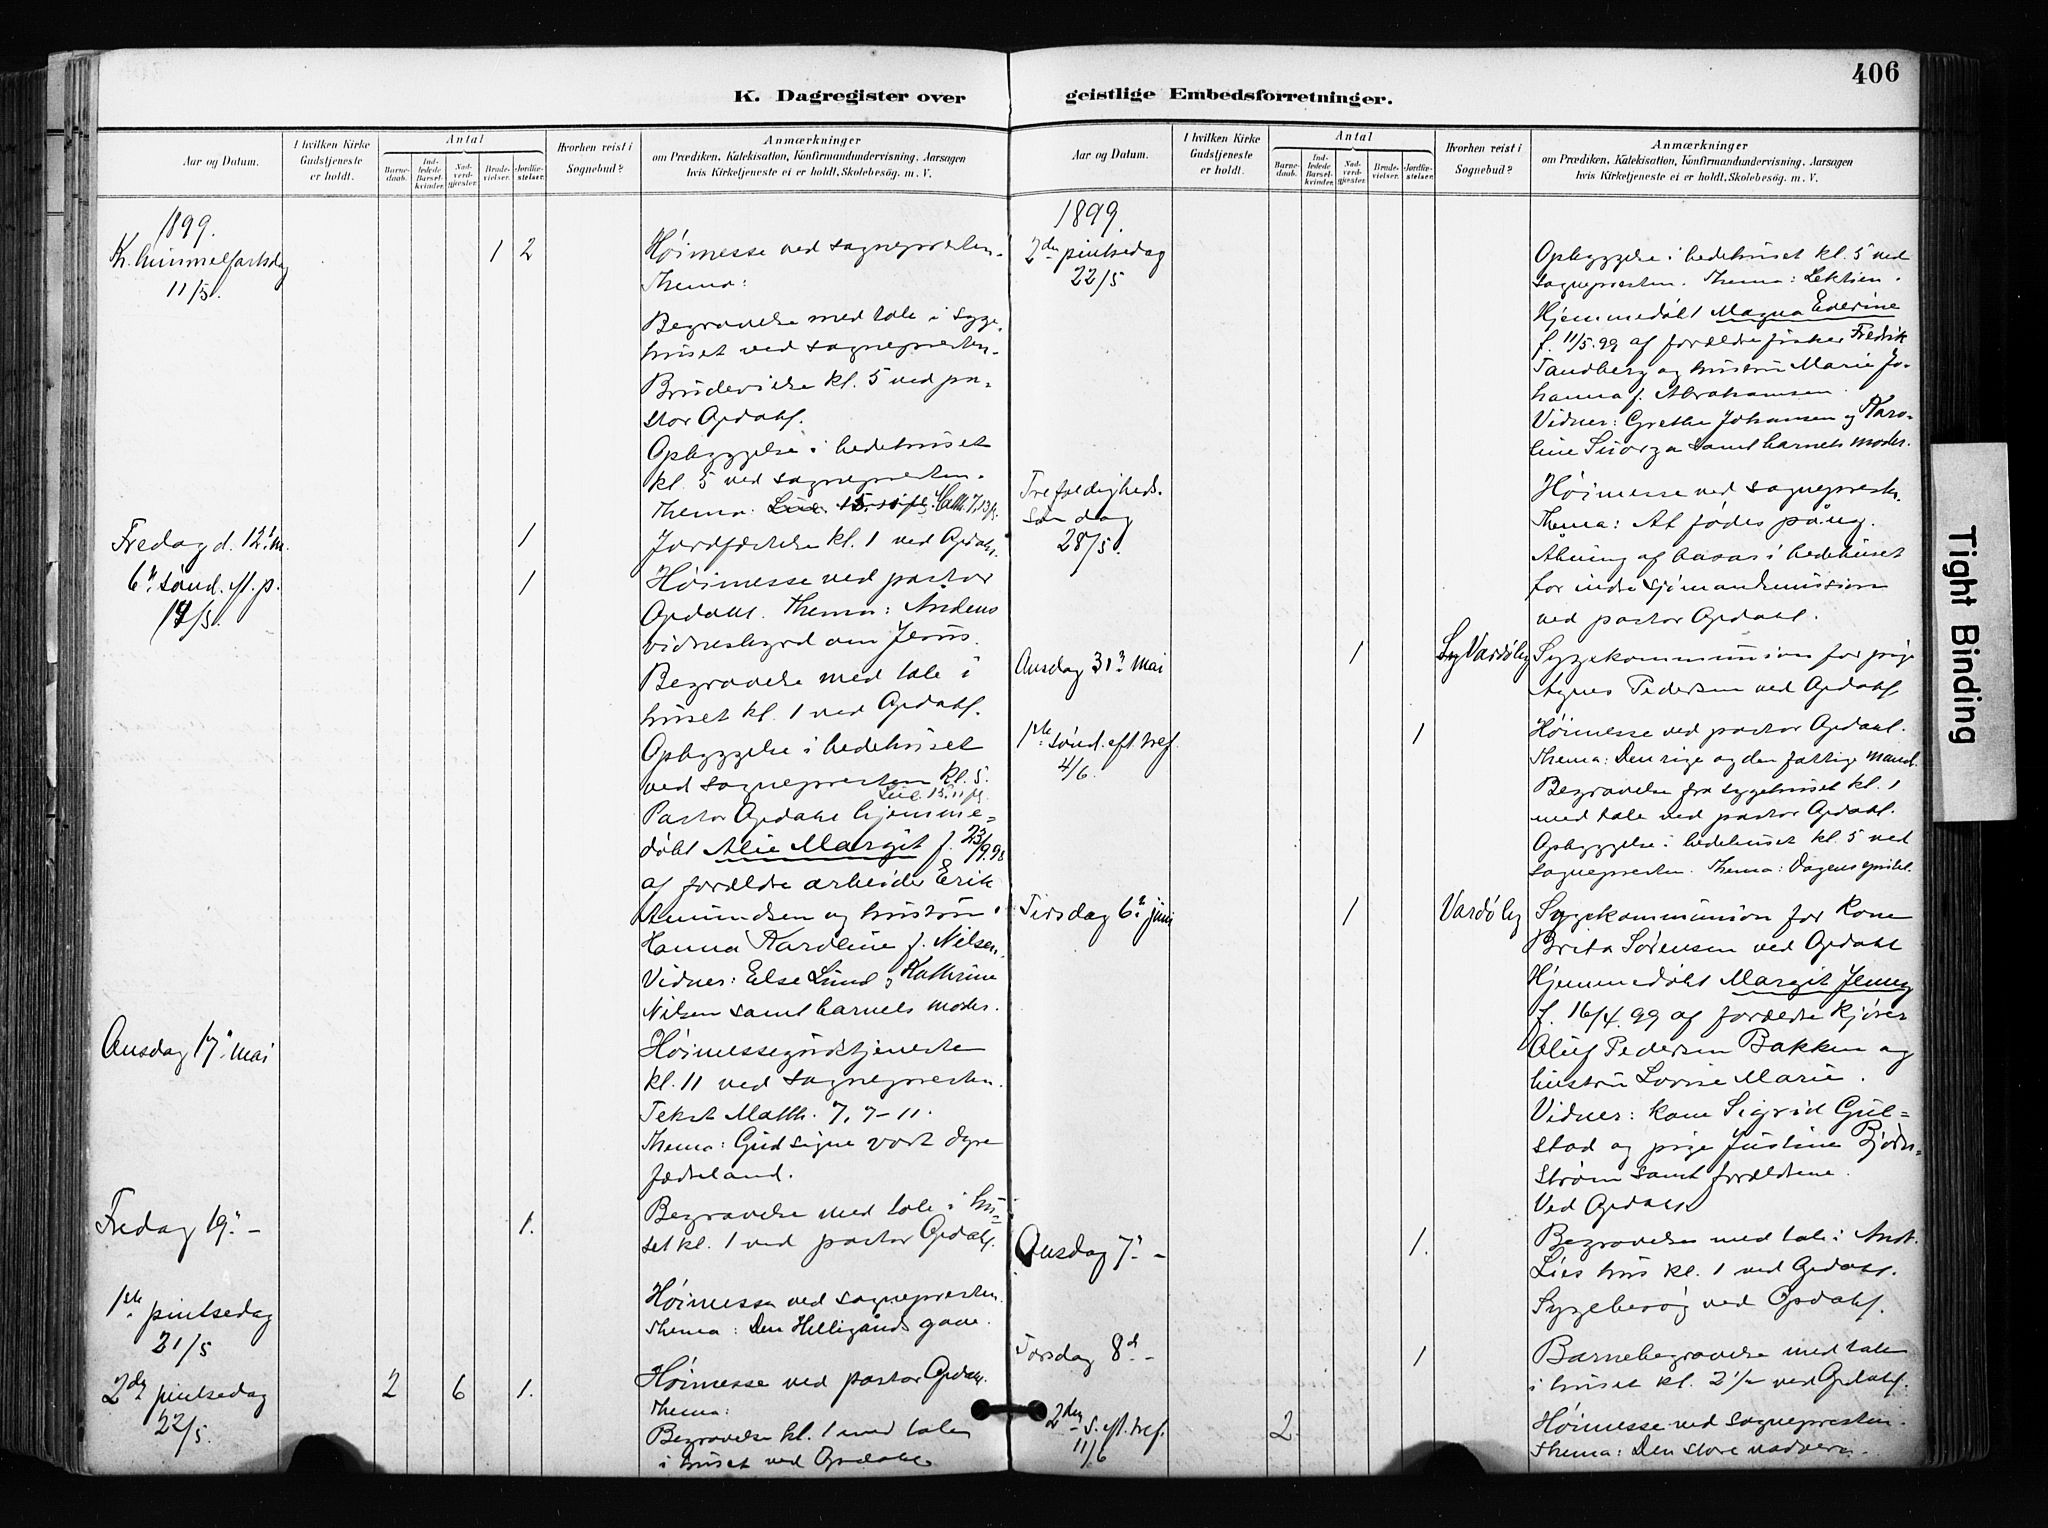 406
K. Dagregister over
geistlige Embedsforretninger.
Aar og Datum.
I hvilken Kirke
Gudstjeneste
er holdt.
Antal
Barne-
daab.
Ind-
ledede
Barsel-
kvinder.
Nad-
verd-
gjester.
Brude-
vielser.
Jordfæ-
stelser.
Hvorhen reist i
Sognebud?
Anmærkninger
om Prædiken, Katekisation, Konfirmandundervisning, Aarsagen
hvis Kirketjeneste ei er holdt, Skolebesøg. m. V.
1899.
K. himmelfartsdag 1 2 Høimesse ved sognepresten.
11/5. Thema:
Begravelse med tale i syge-
huset ved sognepresten.
Brudevielse kl. 5 ved pa-
stor Opdahl.
Opbyggelse i bedehuset
kl. 5 ved sognepresten.
Thema: Luc. 15. Matth. 7, 13 fl.
Fredag d. 12. m. 1 Jordfæstelse kl. 1 ved Opdahl.
6te sönd. ef. p. 1 Høimesse ved pastor
14/5. Opdahl. Thema: Åndens
vidnesbyrd om Jesus.
Begravelse med tale i
huset kl. 1 ved Opdahl.
Opbyggelse i bedehuset
ved sognepresten kl. 5.
Luc. 15. 11 fl.
Pastor Opdahl hjemme-
døbt Alie Margit f. 23/9.98
af forældre arbeider Erik
Amundsen og hustru
Hanna Karoline f. Nilsen.
Vidner: Else Lund, Kathrine
Nilsen samt barnets moder.
Onsdag 17. mai Høimessegudstjeneste
kl. 11 ved sognepresten.
Tekst Matth. 7, 7-11.
Thema: Gud signe vort dyre
fædreland.
Fredag 19. - 1. Begravelse med tale i hu-
set kl. 1 ved pastor Opdahl.
1ste pintsedag Høimesse ved sognepresten.
21/5 Thema: Den Helligånds gave.
2den pintsedag 2 6 1. Høimesse ved pastor Opdahl.
22/5. Thema:
Begravelse kl. 1 med tale
i huset ved Opdahl
Aar og Datum.
I hvilken Kirke
Gudstjeneste
er holdt.
Antal
Barne-
daab.
Ind-
ledede
Barsel-
kvinder.
Nad-
verd-
gjester.
Brude-
vielser.
Jordfæ-
stelser.
Hvorhen reist i
Sognebud?
Anmærkninger
om Prædiken, Katekisation, Konfirmandundervisning, Aarsagen
hvis Kirketjeneste ei er holdt, Skolebesøg. m. V.
1899.
2den pintsedag Opbyggelse i bedehuset kl. 5 ved
22/5 sognepresten. Thema: Lektien.
Hjemmedøbt Magna Ederine
f. 11/5.99 af forældre fisker Fredrik
Sandberg og hustru Marie Jo-
hanna f. Abrahamsen.
Vidner: Grethe Johansen og Karo-
line samt barnets moder.
Trefoldigheds- Høimesse ved sognepresten.
søndag Thema: At fødes påny.
28/5. Åbning af basar i bedehuset
for indre sjømandsmission
ved pastor Opdahl.
Onsdag 31. mai 1 Vardø by Sygekommunion for pige
Agnes Pedersen ved Opdahl
1ste sönd. eft. tref. 1 Høimesse ved pastor Opdahl.
4/6. Thema: Den rige og den fattige mand.
Begravelse fra sygehuset kl. 1
med tale ved pastor Opdahl.
Opbyggelse i bedehuset kl. 5 ved
sognepresten. Thema: Dagens epistel.
Tirsdag 6. juni 1 Vardø by Sygekommunion for kone
Brita Sørensen ved Opdahl
Hjemmedøbt Margit Jenny
f. 16/4.99 af forældre kjører
Oluf Pedersen Bakken og
hustru Lovise Marie.
Vidner: kone Sigrid Gul-
stad og pige Justine Bjørn-
strøm samt forældrene.
Ved Opdahl
Onsdag 7. - 1. Begravelse med tale i Andr.
Lies hus kl. 1 ved Opdahl.
Sygebesøg ved Opdahl.
Torsdag 8. - 1 Barnebegravelse med tale
i huset kl. 2 1/2 ved Opdahl.
2den s. eft. tref. 2 Høimesse ved sognepresten.
11/6 Thema: Den store nadvere.
Tight Binding